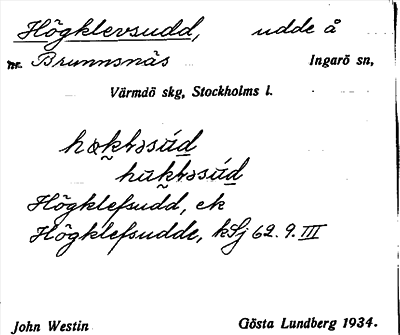 Högklevsudd, udde å
nr. Brunnsnäs Ingarö sn,
Värmdö skg, Stockholms l.
Högklefsudd, ek
Högklefsudde, kSj 62. 9. III
John Westin Gösta Lundberg 1934.